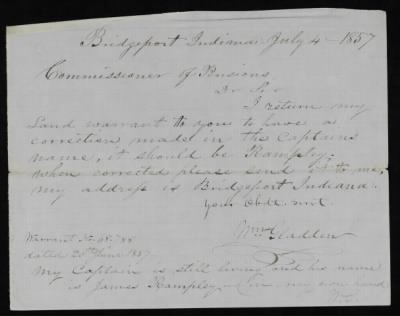 Bridgeport Indiana July 4 - 1857
Commissioner of Pensions
Dr Sir
I return my
Land warrant to you to have a
correction made in the Captains
name, it should be Rampley.
when corrected please send it to me,
my address is Bridgeport Indiana.
your Obdt. svt.
Wm Gladden
Warrant No.
dated 20th June 1857
My Captain is still living and his name
is James Rampley my own hand